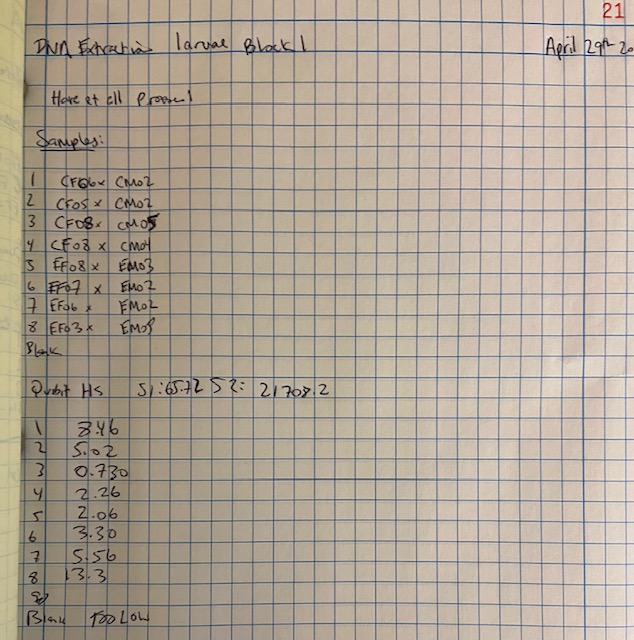 21
DNA Extraction larvae Block 1 April 29th 20
et all
Samples:
1 CF06 x CM02
2 CF05 x CM02
3 CF08 x CM05
4 CF08 x CM04
5 EF08 x EM03
6 EF07 x EM02
7 EF06 x EM02
8 EF03 x
Blank
Qubit HS S1: 65.72 S2: 21708.2
1 8.46
2 5.02
3 0.730
4 2.26
5 2.06
6 3.30
7 5.56
8 13.3
Blank Too Low